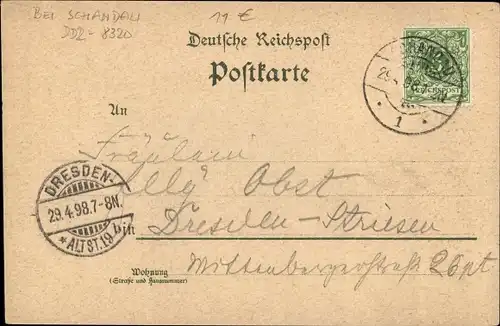 BEI SCHANDAU 11 €
DDR - 8320
Deutsche Reichspost
Postkarte
SCHANDAU
29.4.98.7-8N.
REICHSPOST
* 1 *
An
Fräulein
Elly Obst
DRESDEN-
29.4.98.7-8N.
* ALTST. 19 b
in Dresden-Striesen
Wittenbergerstraße
Wohnung
(Straße und Hausnummer)